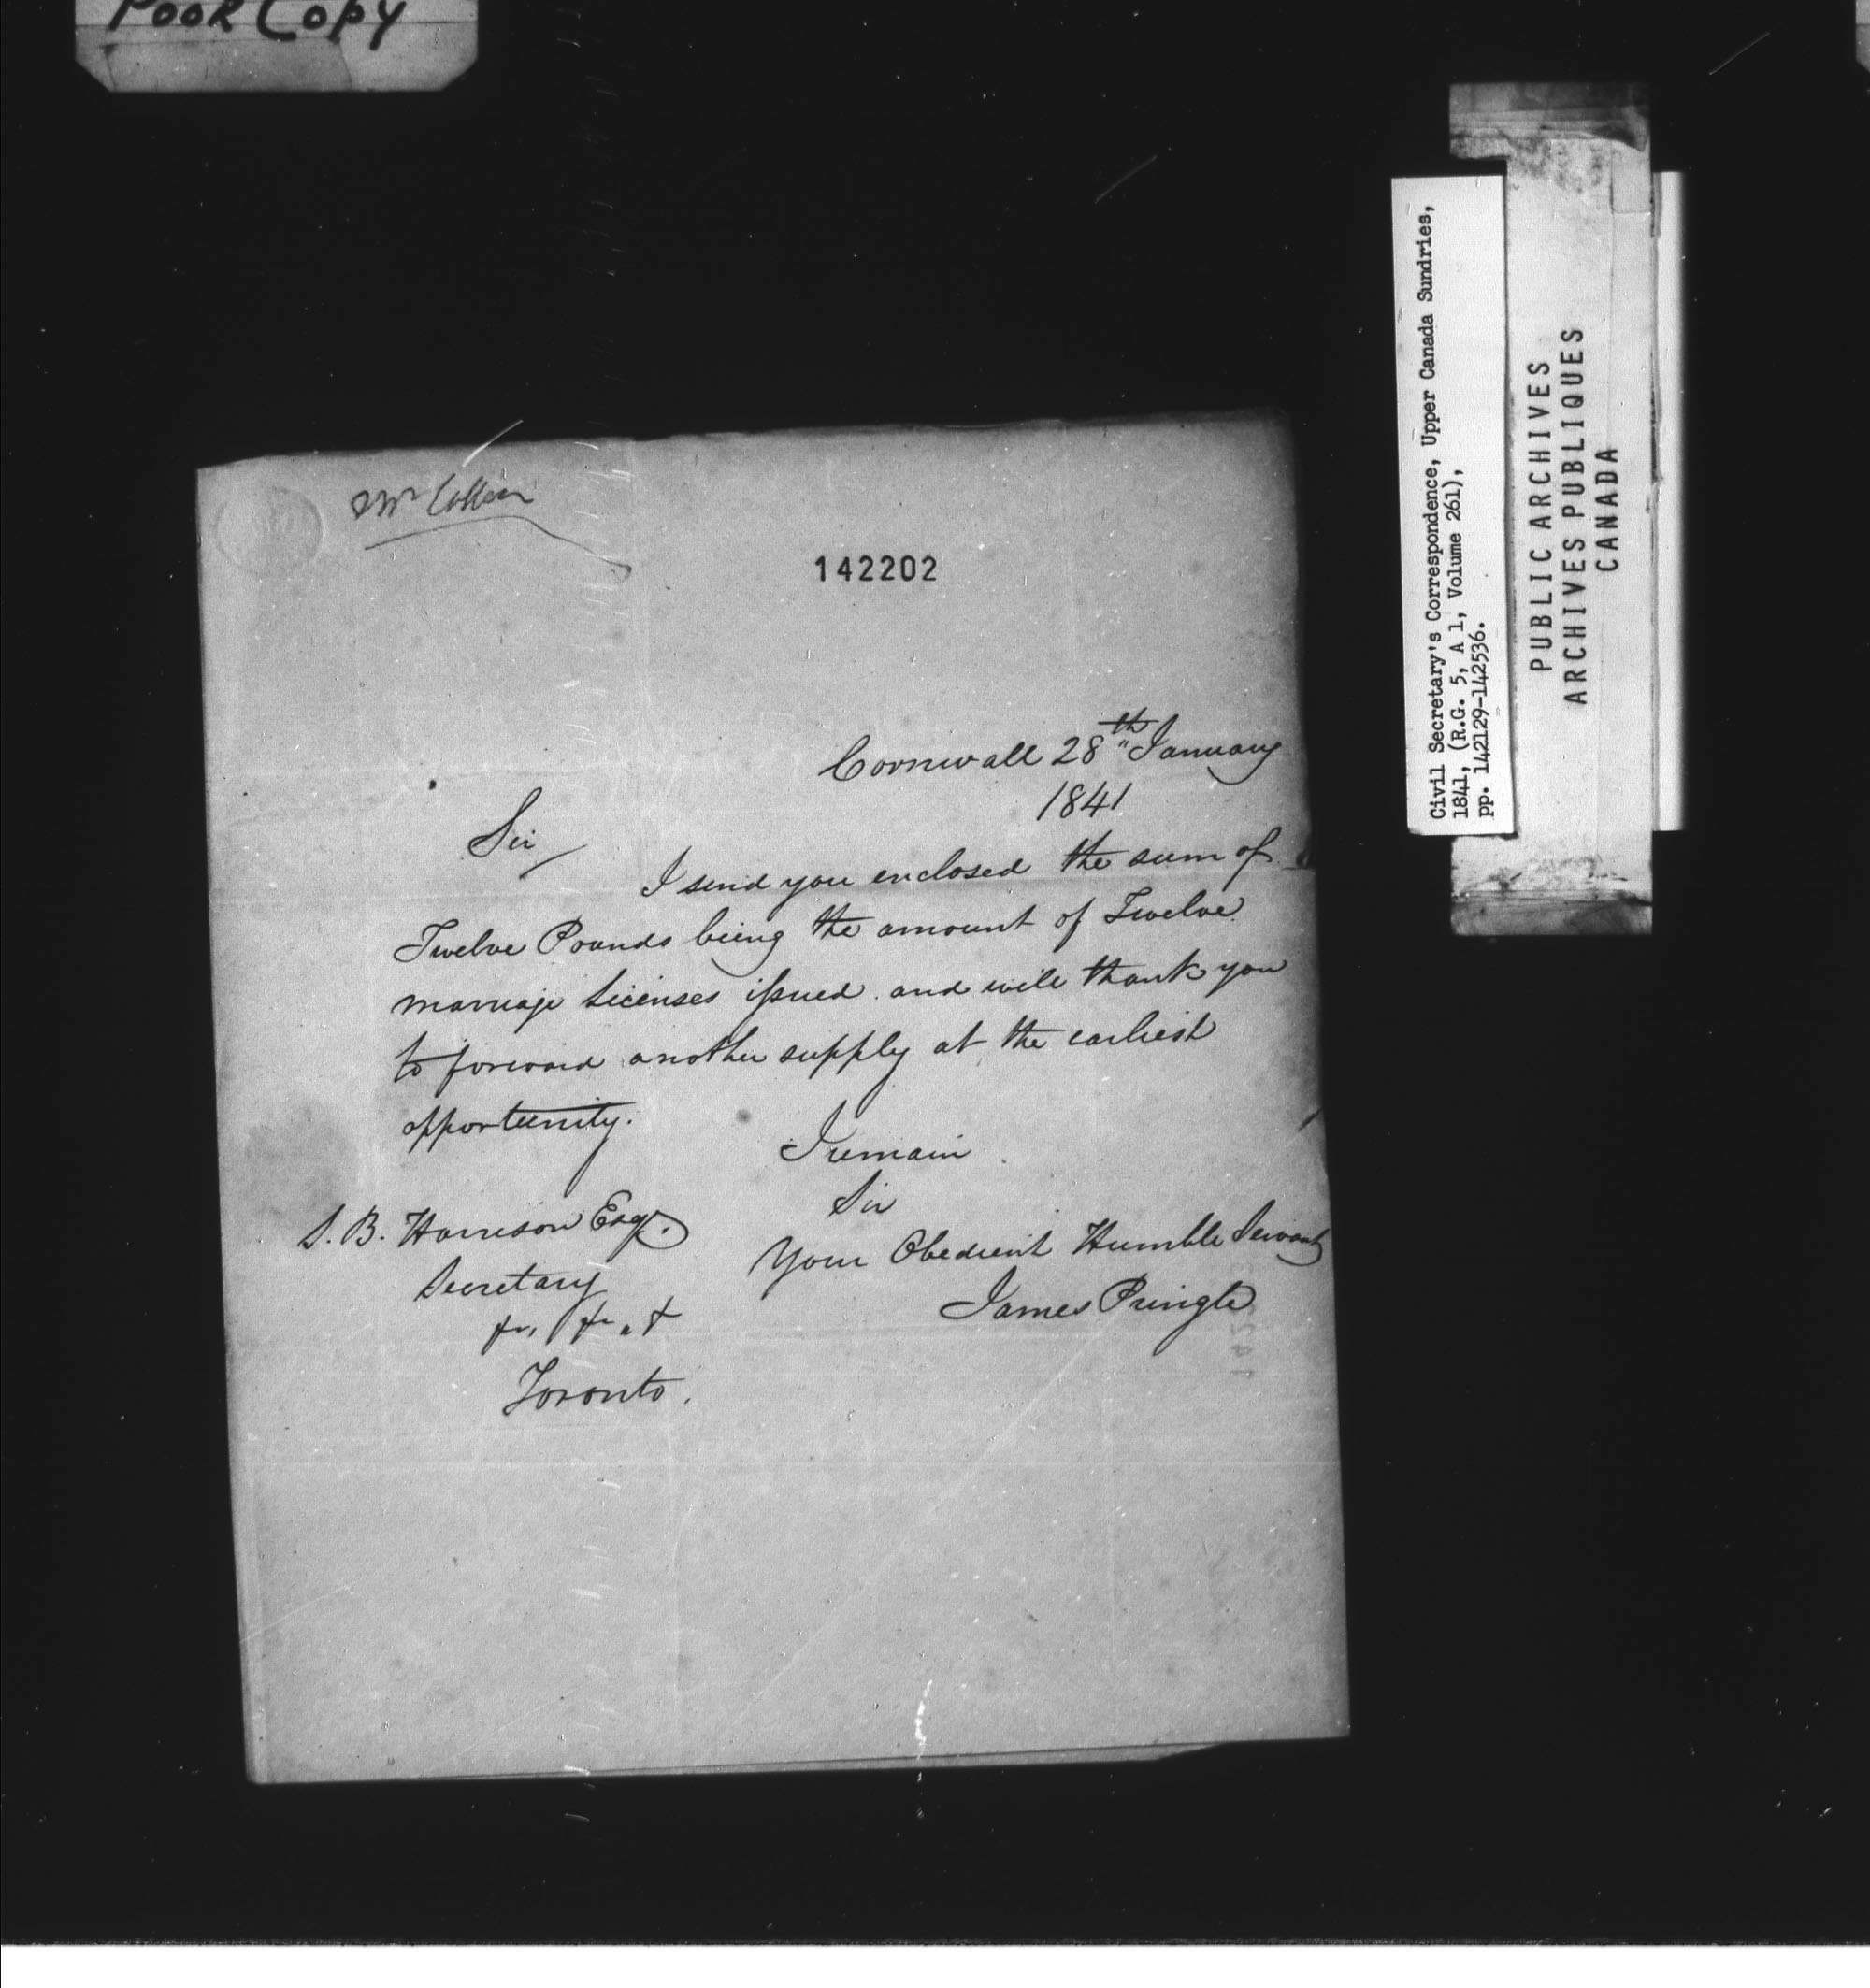 Poor Copy
Mr
142202
Cornwall 28th January
1841
Sir
I send you enclosed the sum of
Twelve Pounds being the amount of Twelve
marriage Licenses issued and will thank you
to forward another supply at the earliest
opportunity.
I remain
Sir
Your Obedient Humble Servant
James Pringle
S. B. Harrison Esqr.
Secretary
&c, &c, &
Toronto.
Civil Secretary's Correspondence, Upper Canada Sundries,
1841, (R.G. 5, A 1, Volume 261),
pp. 142129-142536.
PUBLIC ARCHIVES
ARCHIVES PUBLIQUES
CANADA